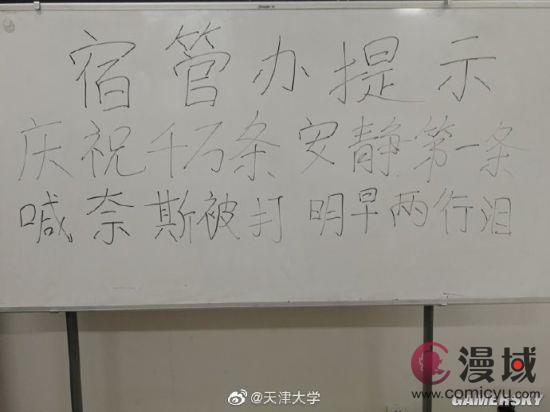 宿管办提示
庆祝千万条 安静第一条
喊奈斯被打 明早两行泪
@天津大学
漫域
www.comicyu.com
GAMERSKY